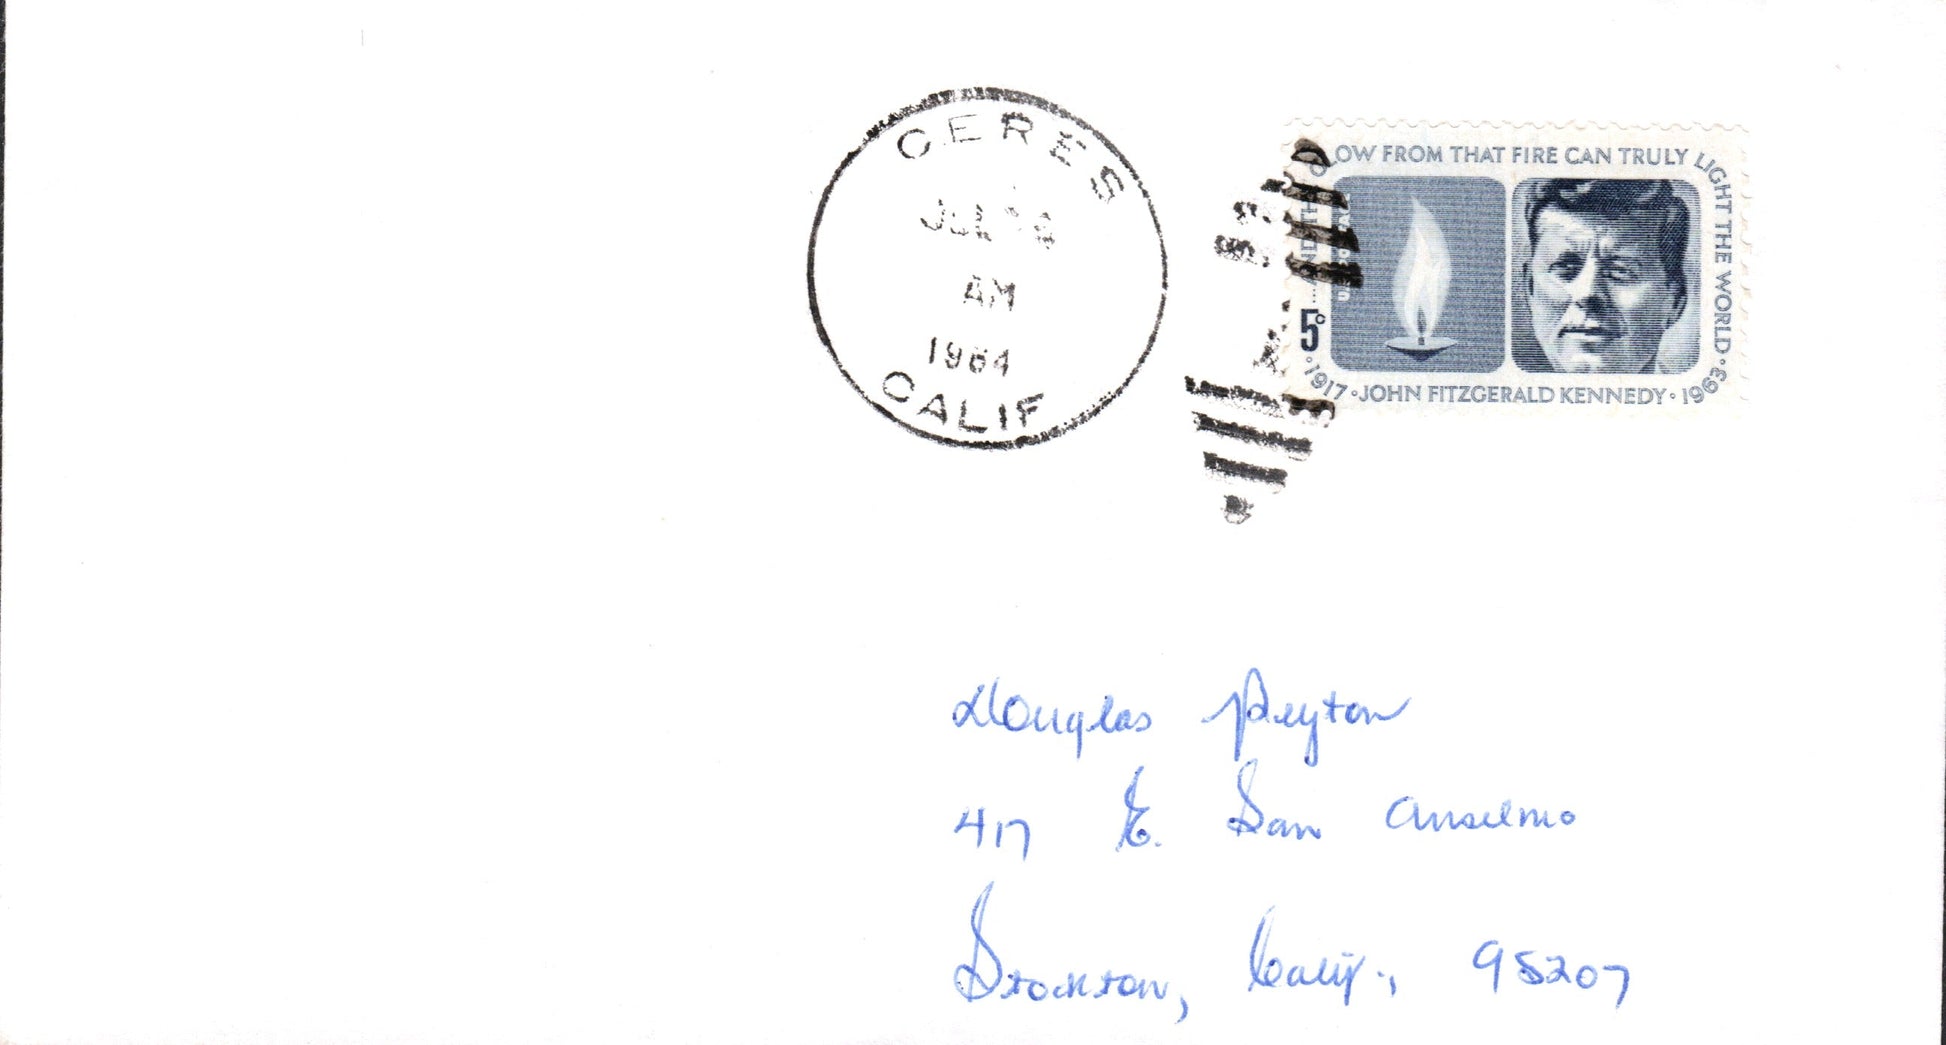 CERES
JUL
AM
1964
CALIF
GLOW FROM THAT FIRE CAN TRULY LIGHT THE WORLD
5c
· 1917 · JOHN FITZGERALD KENNEDY · 1963 ·
Douglas Peyton
417 E. San Anselmo
Stockton, Calif., 95207